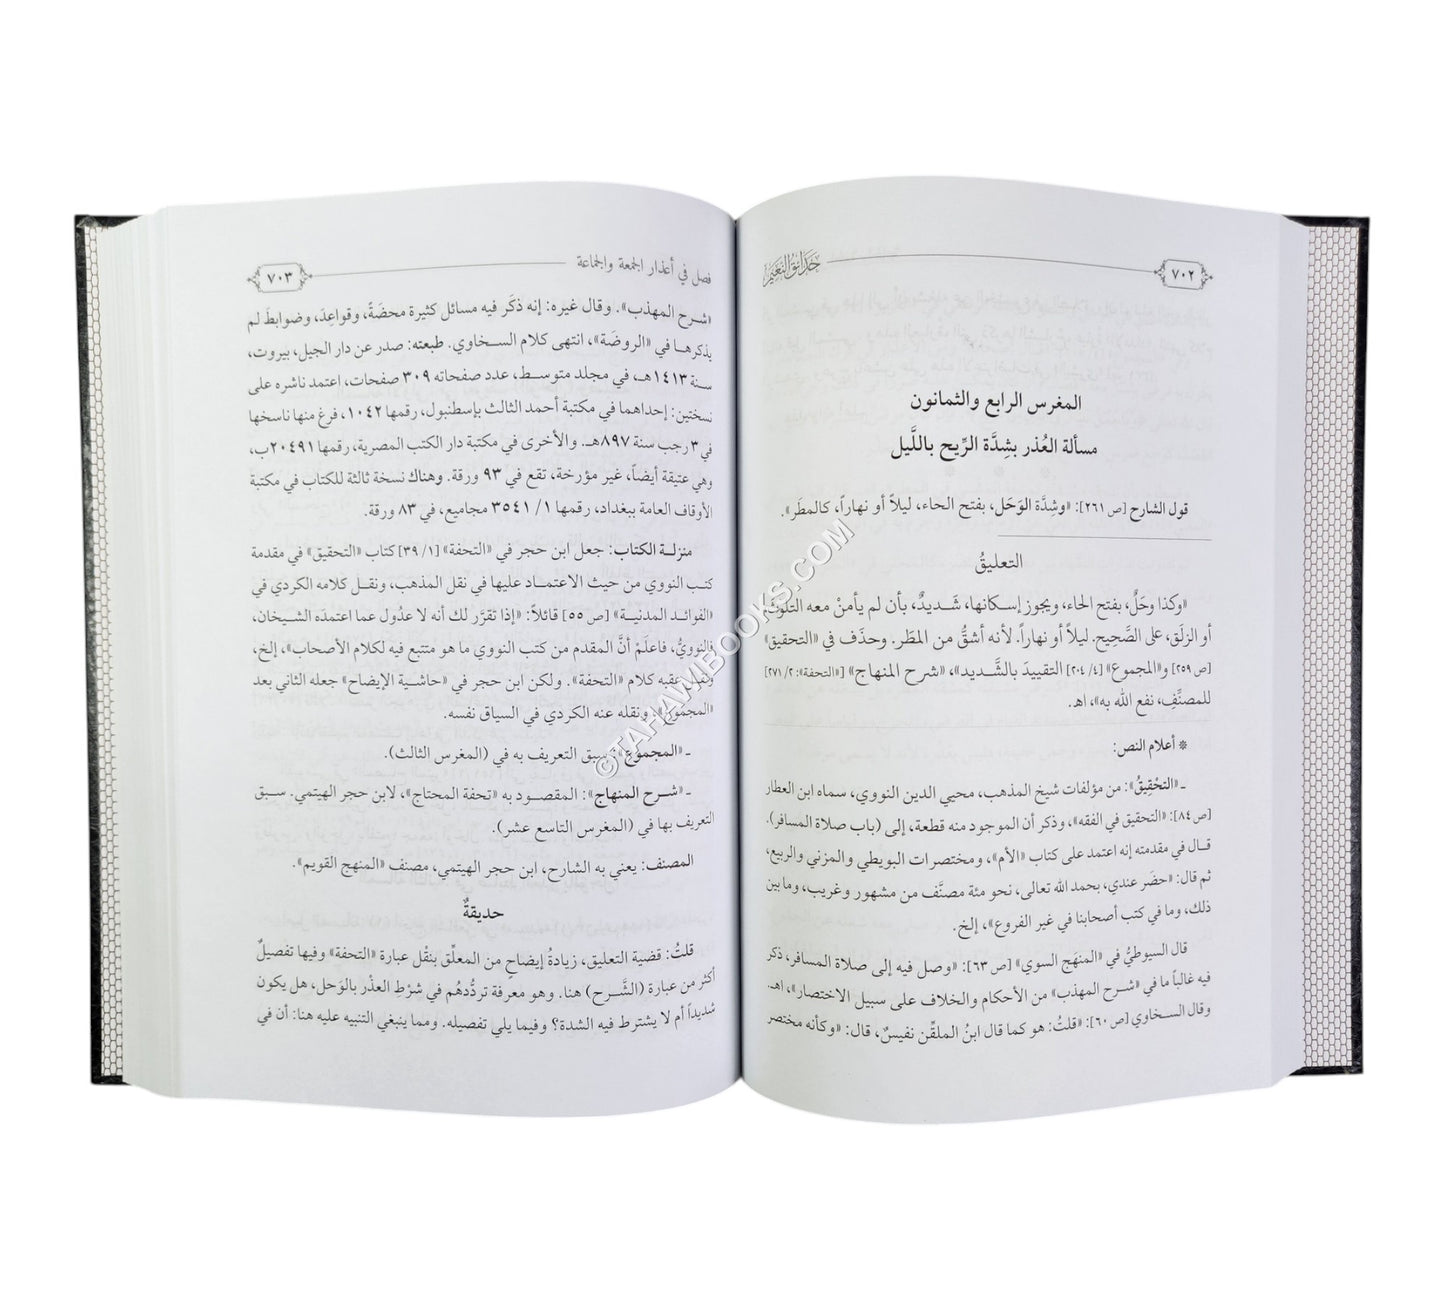 حدائق النعيم
٧٠٢
المغرس الرابع والثمانون
مسألة العُذر بشِدَّة الرِّيح باللَّيل
* * *
قول الشارح [ص ٢٦١]: «وشِدَّة الوَحَل، بفتح الحاء، ليلاً أو نهاراً، كالمطَر».
التعليقُ
«وكذا وحَلٌ، بفتح الحاء، ويجوز إسكانها، شَديدٌ، بأن لم يأمنْ معه التلوثَ
أو الزلَق، على الصَّحِيح. ليلاً أو نهاراً. لأنه أشقُّ من المطَر. وحذَف في «التحقيق»
[ص ٢٥٩] و«المجموع» [٤/ ٢٠٤] التقييدَ بالشَّديد»، «شرح المنهاج» [«التحفة»: ٢/ ٢٧١]
للمصنِّفِ، نفع الله به»، اهـ.
* أعلام النص:
ـ «التحْقِيقُ»: من مؤلفات شيخ المذهب، محيي الدين النووي، سماه ابن العطار
[ص ٨٤]: «التحقيق في الفقه»، وذكر أن الموجود منه قطعة، إلى (باب صلاة المسافر).
قال في مقدمته إنه اعتمد على كتاب «الأم»، ومختصرات البويطي والمزني والربيع،
ثم قال: «حضَر عندي، بحمد الله تعالى، نحو مئة مصنَّف من مشهور وغريب، وما بين
ذلك، وما في كتب أصحابنا في غير الفروع»، إلخ.
قال السيوطيُّ في «المنهَج السوي» [ص ٦٣]: «وصل فيه إلى صلاة المسافر، ذكر
فيه غالباً ما في «شرح المهذب» من الأحكام والخلاف على سبيل الاختصار»، اهـ.
وقال السخاوي [ص ٦٠]: «قلتُ: هو كما قال ابنُ الملقِّن نفيسٌ، قال: «وكأنه مختصر
فصل في أعذار الجمعة والجماعة
٧٠٣
«شرح المهذب». وقال غيره: إنه ذكَر فيه مسائل كثيرة محضَةً، وقواعِدَ، وضوابطَ لم
يذكرها في «الروضَة»، انتهى كلام السخاوي. طبعته: صدر عن دار الجيل، بيروت،
سنة ١٤١٣هـ، في مجلد متوسط، عدد صفحاته ٣٠٩ صفحات، اعتمد ناشره على
نسختين: إحداهما في مكتبة أحمد الثالث بإسطنبول، رقمها ١٠٤٢، فرغ منها ناسخها
في ٣ رجب سنة ٨٩٧هـ. والأخرى في مكتبة دار الكتب المصرية، رقمها ٢٠٤٩١ب،
وهي عتيقة أيضاً، غير مؤرخة، تقع في ٩٣ ورقة. وهناك نسخة ثالثة للكتاب في مكتبة
الأوقاف العامة ببغداد، رقمها ١/ ٣٥٤١ مجاميع، في ٨٣ ورقة.
منزلة الكتاب: جعل ابن حجر في «التحفة» [١/ ٣٩] كتاب «التحقيق» في مقدمة
كتب النووي من حيث الاعتماد عليها في نقل المذهب، ونقل كلامه الكردي في
«الفوائد المدنية» [ص ٥٥] قائلاً: «إذا تقرَّر لك أنه لا عدُول عما اعتمدَه الشيخان،
فالنوويُّ، فاعلَمْ أنَّ المقدم من كتب النووي ما هو متتبع فيه لكلام الأصحاب»، إلخ،
عقبه كلام «التحفة». ولكن ابن حجر في «حاشية الإيضاح» جعله الثاني بعد
«المجموع» ونقله عنه الكردي في السياق نفسه.
ـ «المجموع»: سبق التعريف به في (المغرس الثالث).
ـ «شرح المنهاج»: المقصود به «تحفة المحتاج»، لابن حجر الهيتمي. سبق
التعريف بها في (المغرس التاسع عشر).
المصنف: يعني به الشارح، ابن حجر الهيتمي، مصنف «المنهج القويم».
حديقةٌ
قلتُ: قضية التعليق، زيادةُ إيضاحٍ من المعلِّق بنقْل عبارة «التحفة» وفيها تفصيلٌ
أكثر من عبارة (الشَّرح) هنا. وهو معرفة تردُّدهُم في شرْطِ العذْر بالوَحل، هل يكون
شديداً أم لا يشترط فيه الشدة؟ وفيما يلي تفصيله. ومما ينبغي التنبيه عليه هنا: أن في
©TAHAWIBOOKS.COM